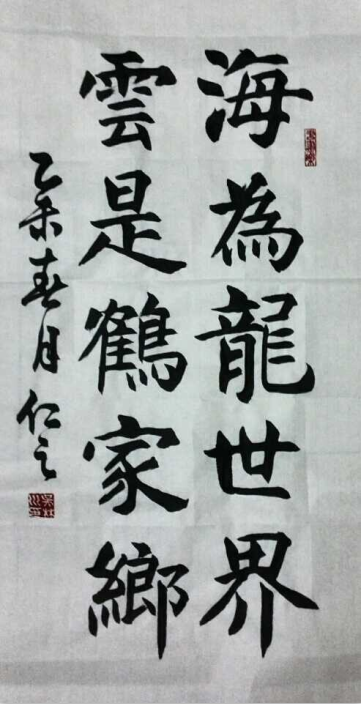 海為龍世界
雲是鶴家鄉
乙未春月仁之